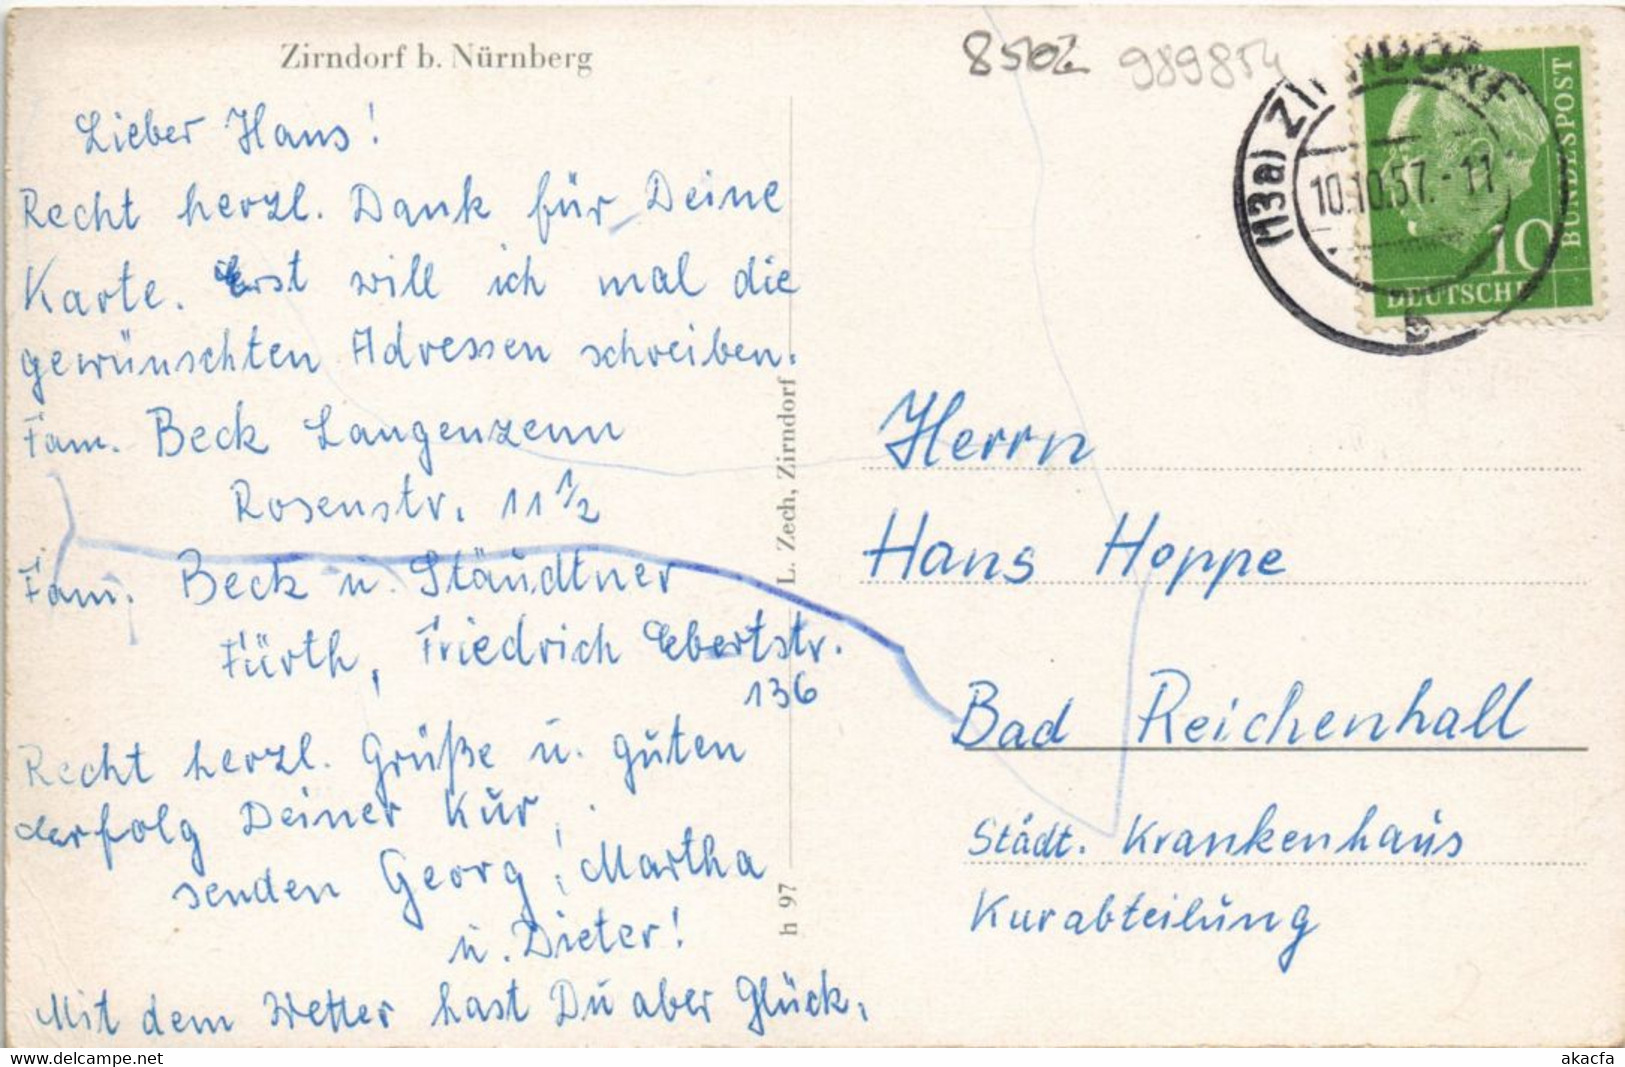 Zirndorf b. Nürnberg
8502 989854
Lieber Hans!
Recht herzl. Dank für Deine
Karte. Erst will ich mal die
gewünschten Adressen schreiben.
Fam. Beck Langenzenn
Rosenstr. 11 1/2
Fam. Beck u. Ständtner
Fürth, Friedrich Ebertstr.
136
Recht herzl. Grüße u. guten
erfolg Deiner Kur,
senden Georg, Martha
u. Dieter!
Mit dem Wetter hast Du aber Glück.
L. Zech, Zirndorf
h 97
(13a) ZIRNDORF
10.10.57.-11
b
10
DEUTSCHE
BUNDESPOST
Herrn
Hans Hoppe
Bad Reichenhall
Städt. Krankenhaus
Kurabteilung
delcampe.net
akacfa